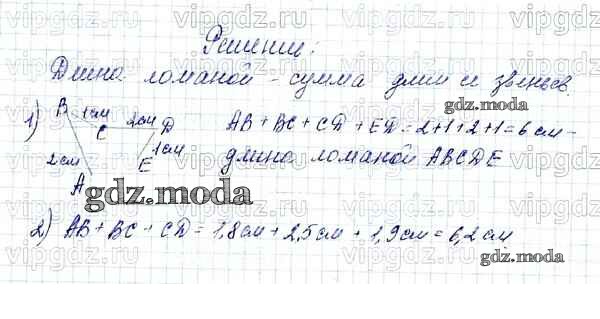 Решение:
Длина ломаной - сумма длин её звеньев.
1) B 1см C 2см D AB + BC + CD + ED = 2+1+2+1 = 6 см -
2см A 1см E длина ломаной ABCDE
2) AB + BC + CD = 1,8см + 2,5см + 1,9см = 6,2 см
gdz.moda
gdz.moda
gdz.moda
vipgdz.ru
vipgdz.ru
vipgdz.ru